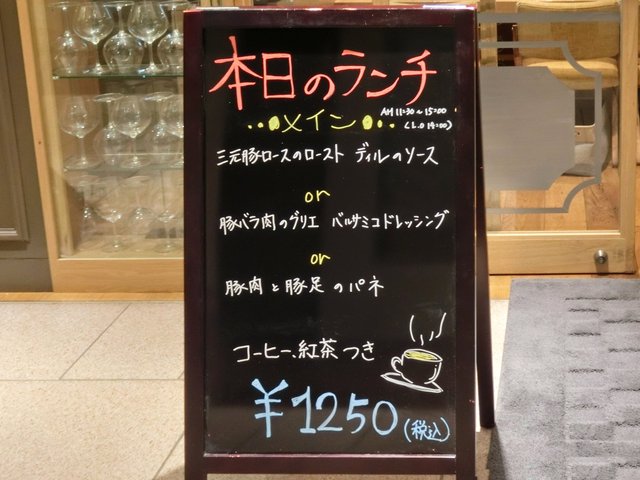 本日のランチ
AM 11:30~15:00
メイン
(L.O 14:00)
三元豚ロースのロースト ディルのソース
or
豚バラ肉のグリエ バルサミコドレッシング
or
豚肉と豚足のパネ
コーヒー、紅茶つき
¥1250(税込)